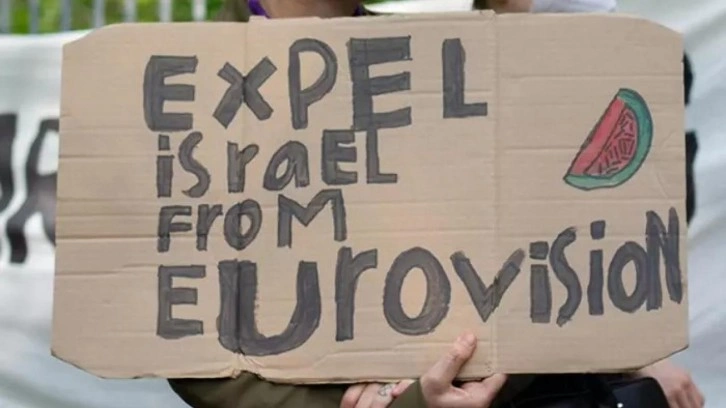 EXPEL
israEL
FROM
EUrovision